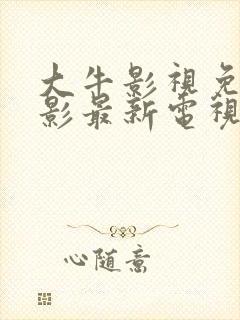 大牛影視免
影最新電視
心随意